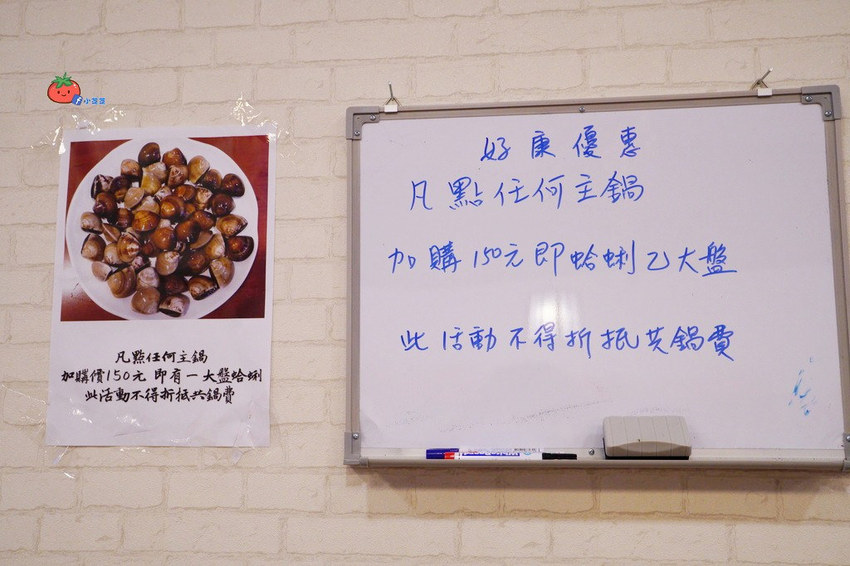 小芝芝
凡點任何主鍋
加購價150元 即有一大盤蛤蜊
此活動不得折抵共鍋費
好康優惠
凡點任何主鍋
加購150元即蛤蜊乙大盤
此活動不得折抵共鍋費